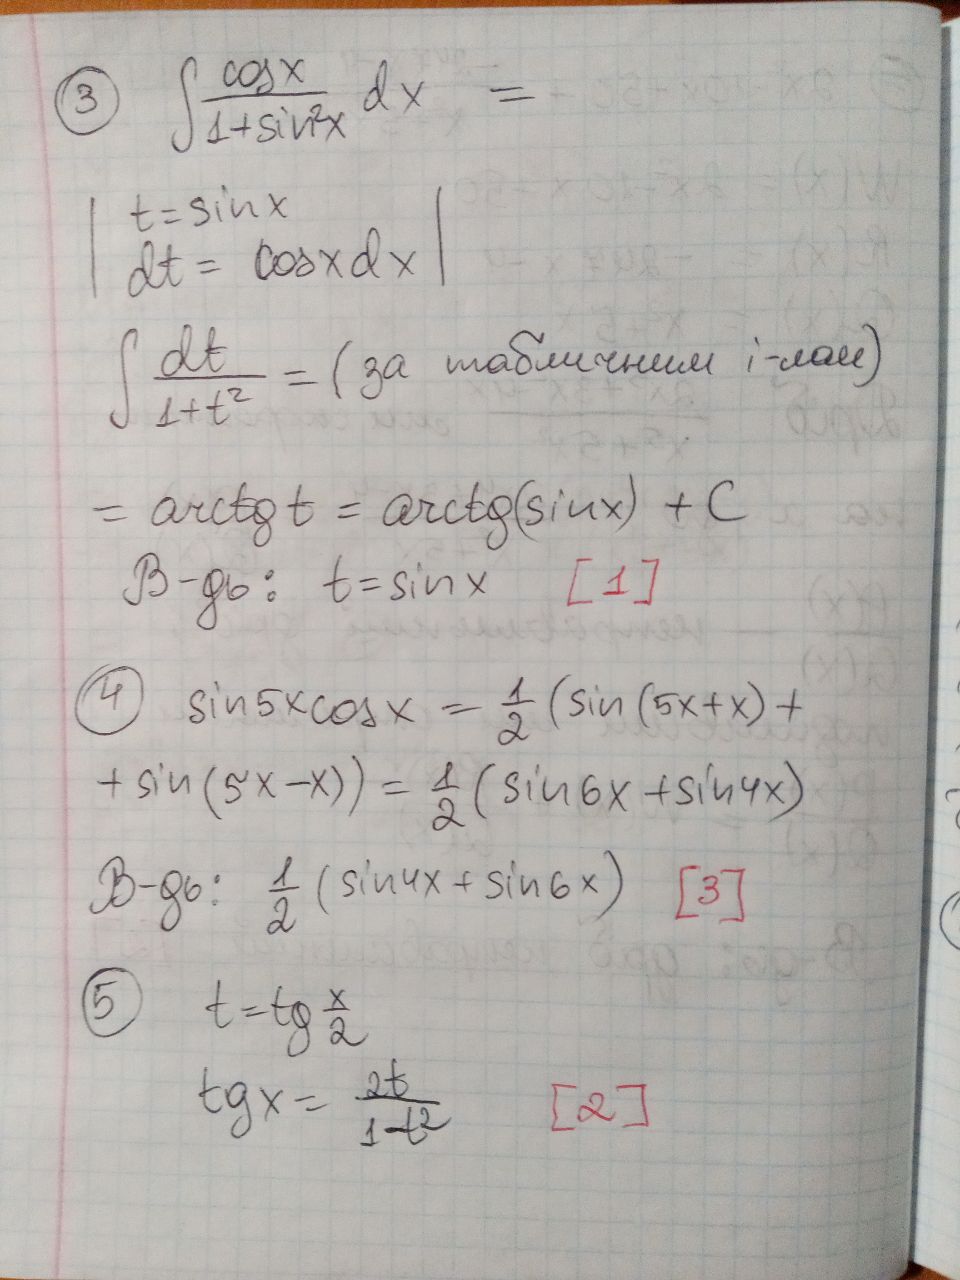 ③ ∫ cosx/(1+sin²x) dx =
| t=sinx |
| dt= cosxdx |
∫ dt/(1+t²) = (за табличним і-лом)
= arctg t = arctg(sinx) + C
В-дь: t=sinx [1]
④ sin5xcosx = 1/2 (sin(5x+x)+
+sin(5x-x)) = 1/2 (sin6x+sin4x)
В-дь: 1/2 (sin4x+sin6x) [3]
⑤ t=tg x/2
tgx= 2t/(1-t²) [2]